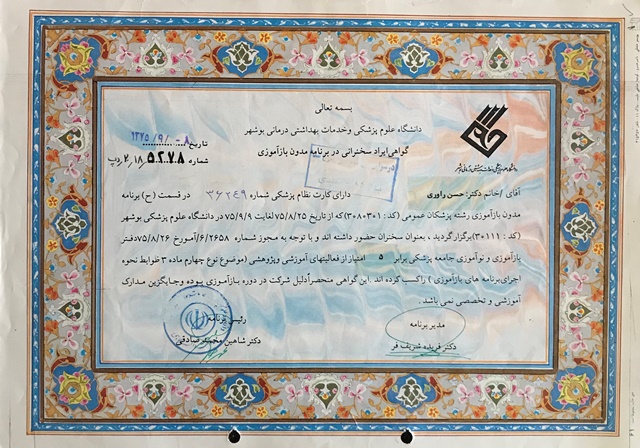 بسمه تعالی
دانشگاه علوم پزشکی وخدمات بهداشتی درمانی بوشهر
گواهی ایراد سخنرانی در برنامه مدون بازآموزی
تاریخ ۱۳۷۵/۹/۰۸
شماره ۵۲۷۸ / ۱۸ / ۲ / پ
آقای /خانم دکتر: حسن راوری دارای کارت نظام پزشکی شماره ۳۶۲۴۹ در قسمت (ح) برنامه
مدون بازآموزی رشته پزشکان عمومی (کد : ۳۰۸۰۳۰۱) که از تاریخ ۷۵/۸/۲۵ لغایت ۷۵/۹/۹ در دانشگاه علوم پزشکی بوشهر
(کد : ۳۰۱۱۱) برگزار گردید ، بعنوان سخنران حضور داشته اند و با توجه به مجوز شماره ۶/۲۶۵۸/آ مورخ ۷۵/۸/۲۶ دفتر
بازآموزی و نوآموزی جامعه پزشکی برابر ۵ امتیاز از فعالیتهای آموزشی وپژوهشی (موضوع نوع چهارم ماده ۳ ضوابط نحوه
اجرای برنامه های بازآموزی ) راکسب کرده اند .این گواهی منحصراً دلیل شرکت در دوره بازآموزی بوده وجایگزین مدارک
آموزشی و تخصصی نمی باشد .
مدیر برنامه
دکتر فریده شریف فر
رئیس برنامه
دکتر شاهین محمد صادقی